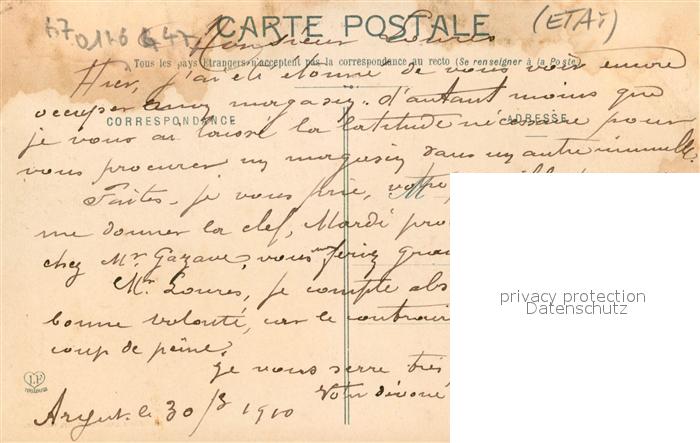 CARTE POSTALE
(ETAT)
Monsieur Loures
Tous les pays Etrangers n'acceptent pas la correspondance au recto (Se renseigner à la Poste)
Hier, j'ai été étonné de vous voir encore
occuper mon magasin. d'autant moins que
CORRESPONDANCE
ADRESSE
je vous ai laissé la latitude nécessaire pour
vous procurer un magasin dans un autre immeuble.
Faites, je vous prie, votre
M
me donner la clef, Mardi
chez Mr Gazave, vous me feriez
Mr Loures, je compte
bonne volonté, car le
coup de peine.
je vous serre très
Votre dévoué
LF
TOULOUSE
le 30/3 1910
privacy protection
Datenschutz